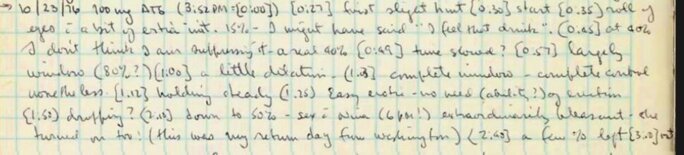 → 10/23/76 100 mg (3:52PM=[0:00]) [0:27] first slight hint [0:30] start [0:35] roll of
eyes c̄ a bit of extra int. 15% - I might have said "I feel that drink". [0:45] at 40%
I don't think I am suppressing it - a real 40% [0:49] time slowed? [0:57] largely
window (80%?) [1:00] a little dilation. - [1:08] complete window - complete control
none the less. [1:12] holding steady (1:25) Easy erotic - no need (ability?) of erection
[1:50] dropping? (2:10) down to 50% - sex c̄ (6pm!) extraordinarily pleasant - she
turned on too! (this was my return day from Washington) (2:40) a few % left [3:20] out